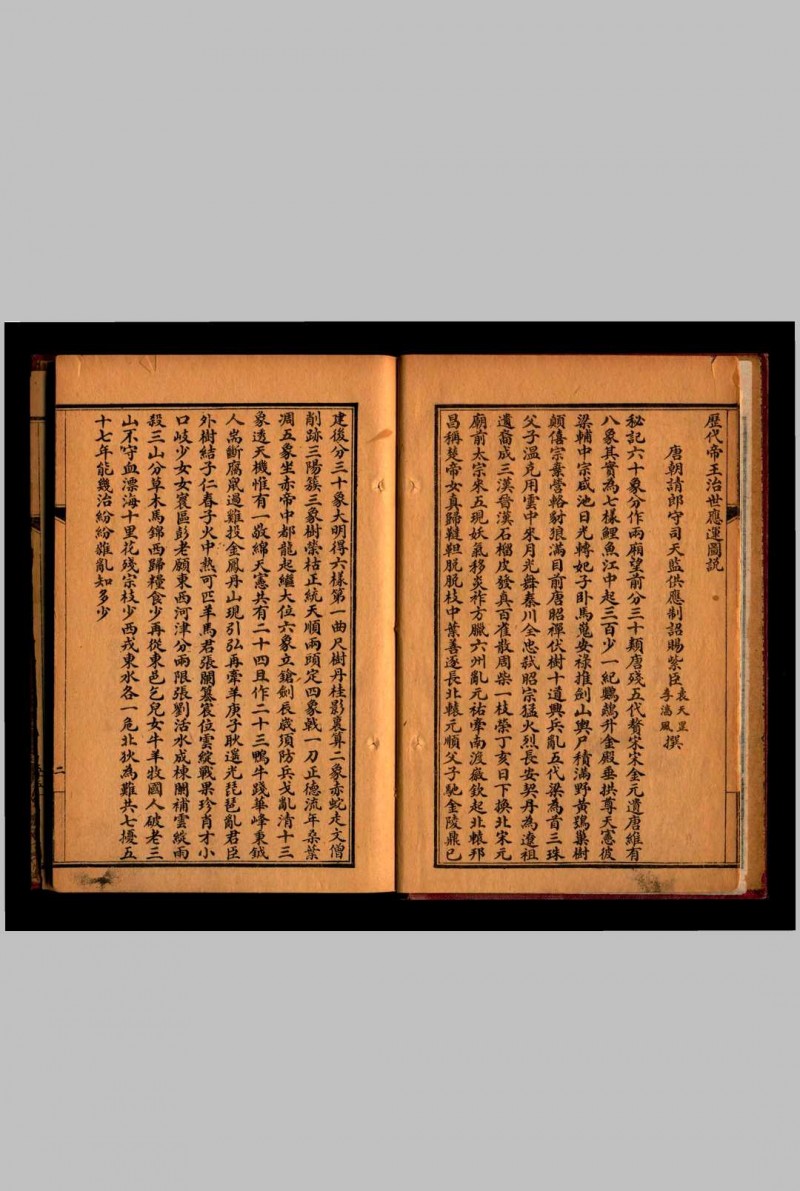 歷代帝王治世應運圖説
唐朝請郎守司天監供應制詔賜紫臣袁天罡李淳風撰
秘記六十象分作兩廂望前分三十類唐殘五代督宋宋金元遺唐維有
八象其實為七樣鯉魚江中起三百少一紀鸚鵡升金殿垂拱尊天憲彼
梁輔中宗咸池日光轉妃子卧馬嵬安祿推劍山輿尸積滿野黃鵶巢樹
顛僖宗業營輅豺狼滿目前唐昭禪伏樹十道興兵亂五代梁為首三珠
父子溫克用雲中朱月光舞秦川全忠弒昭宗猛火烈長安契丹為遼祖
遺裔成三漢晉漢石榴皮發真百雀散周柴一枝榮丁亥日下換北宋元
廟前太宗來五現妖氣移炎祚方臘六州亂元祐牽南渡徽欽起北轅邦
昌稱楚帝女真歸韃靼脱脱枝中葉善逐長北轅元順父子馳金陵鼎已
建後分三十象大明得六樣第一曲尺樹丹桂影裏算二象赤蛇走文僧
削跡三陽簇三象樹榮枯正統天順兩頭定四象戟一刀正德流年桑葉
凋五象坐赤帝中都龍起繼大位六象立鎗劍辰歲須防兵戈亂清十三
象透天機惟有一敬綿天憲共有二十四且作二十三鴨牛踐華峰秉鉞
人嵩斷腐鼠過難投金鳳丹山現引弘再牽羊庚子耿還光琵琶亂君臣
外樹結子仁春子火中熬可匹羊馬君張闖篡宸位雲綻戰果珍肖才小
口岐少女女寰區彭老願東西河津分兩限張劉活水成棟闢補雲綻雨
殺三山分草木馬錦西歸糧食少再從東邑乞兒女牛羊牧國人破老三
山不守血漂海十里花殘宗枝少西戎東水各一危北狄為難共七擾五
十七年能幾治紛紛雜亂知多少
二